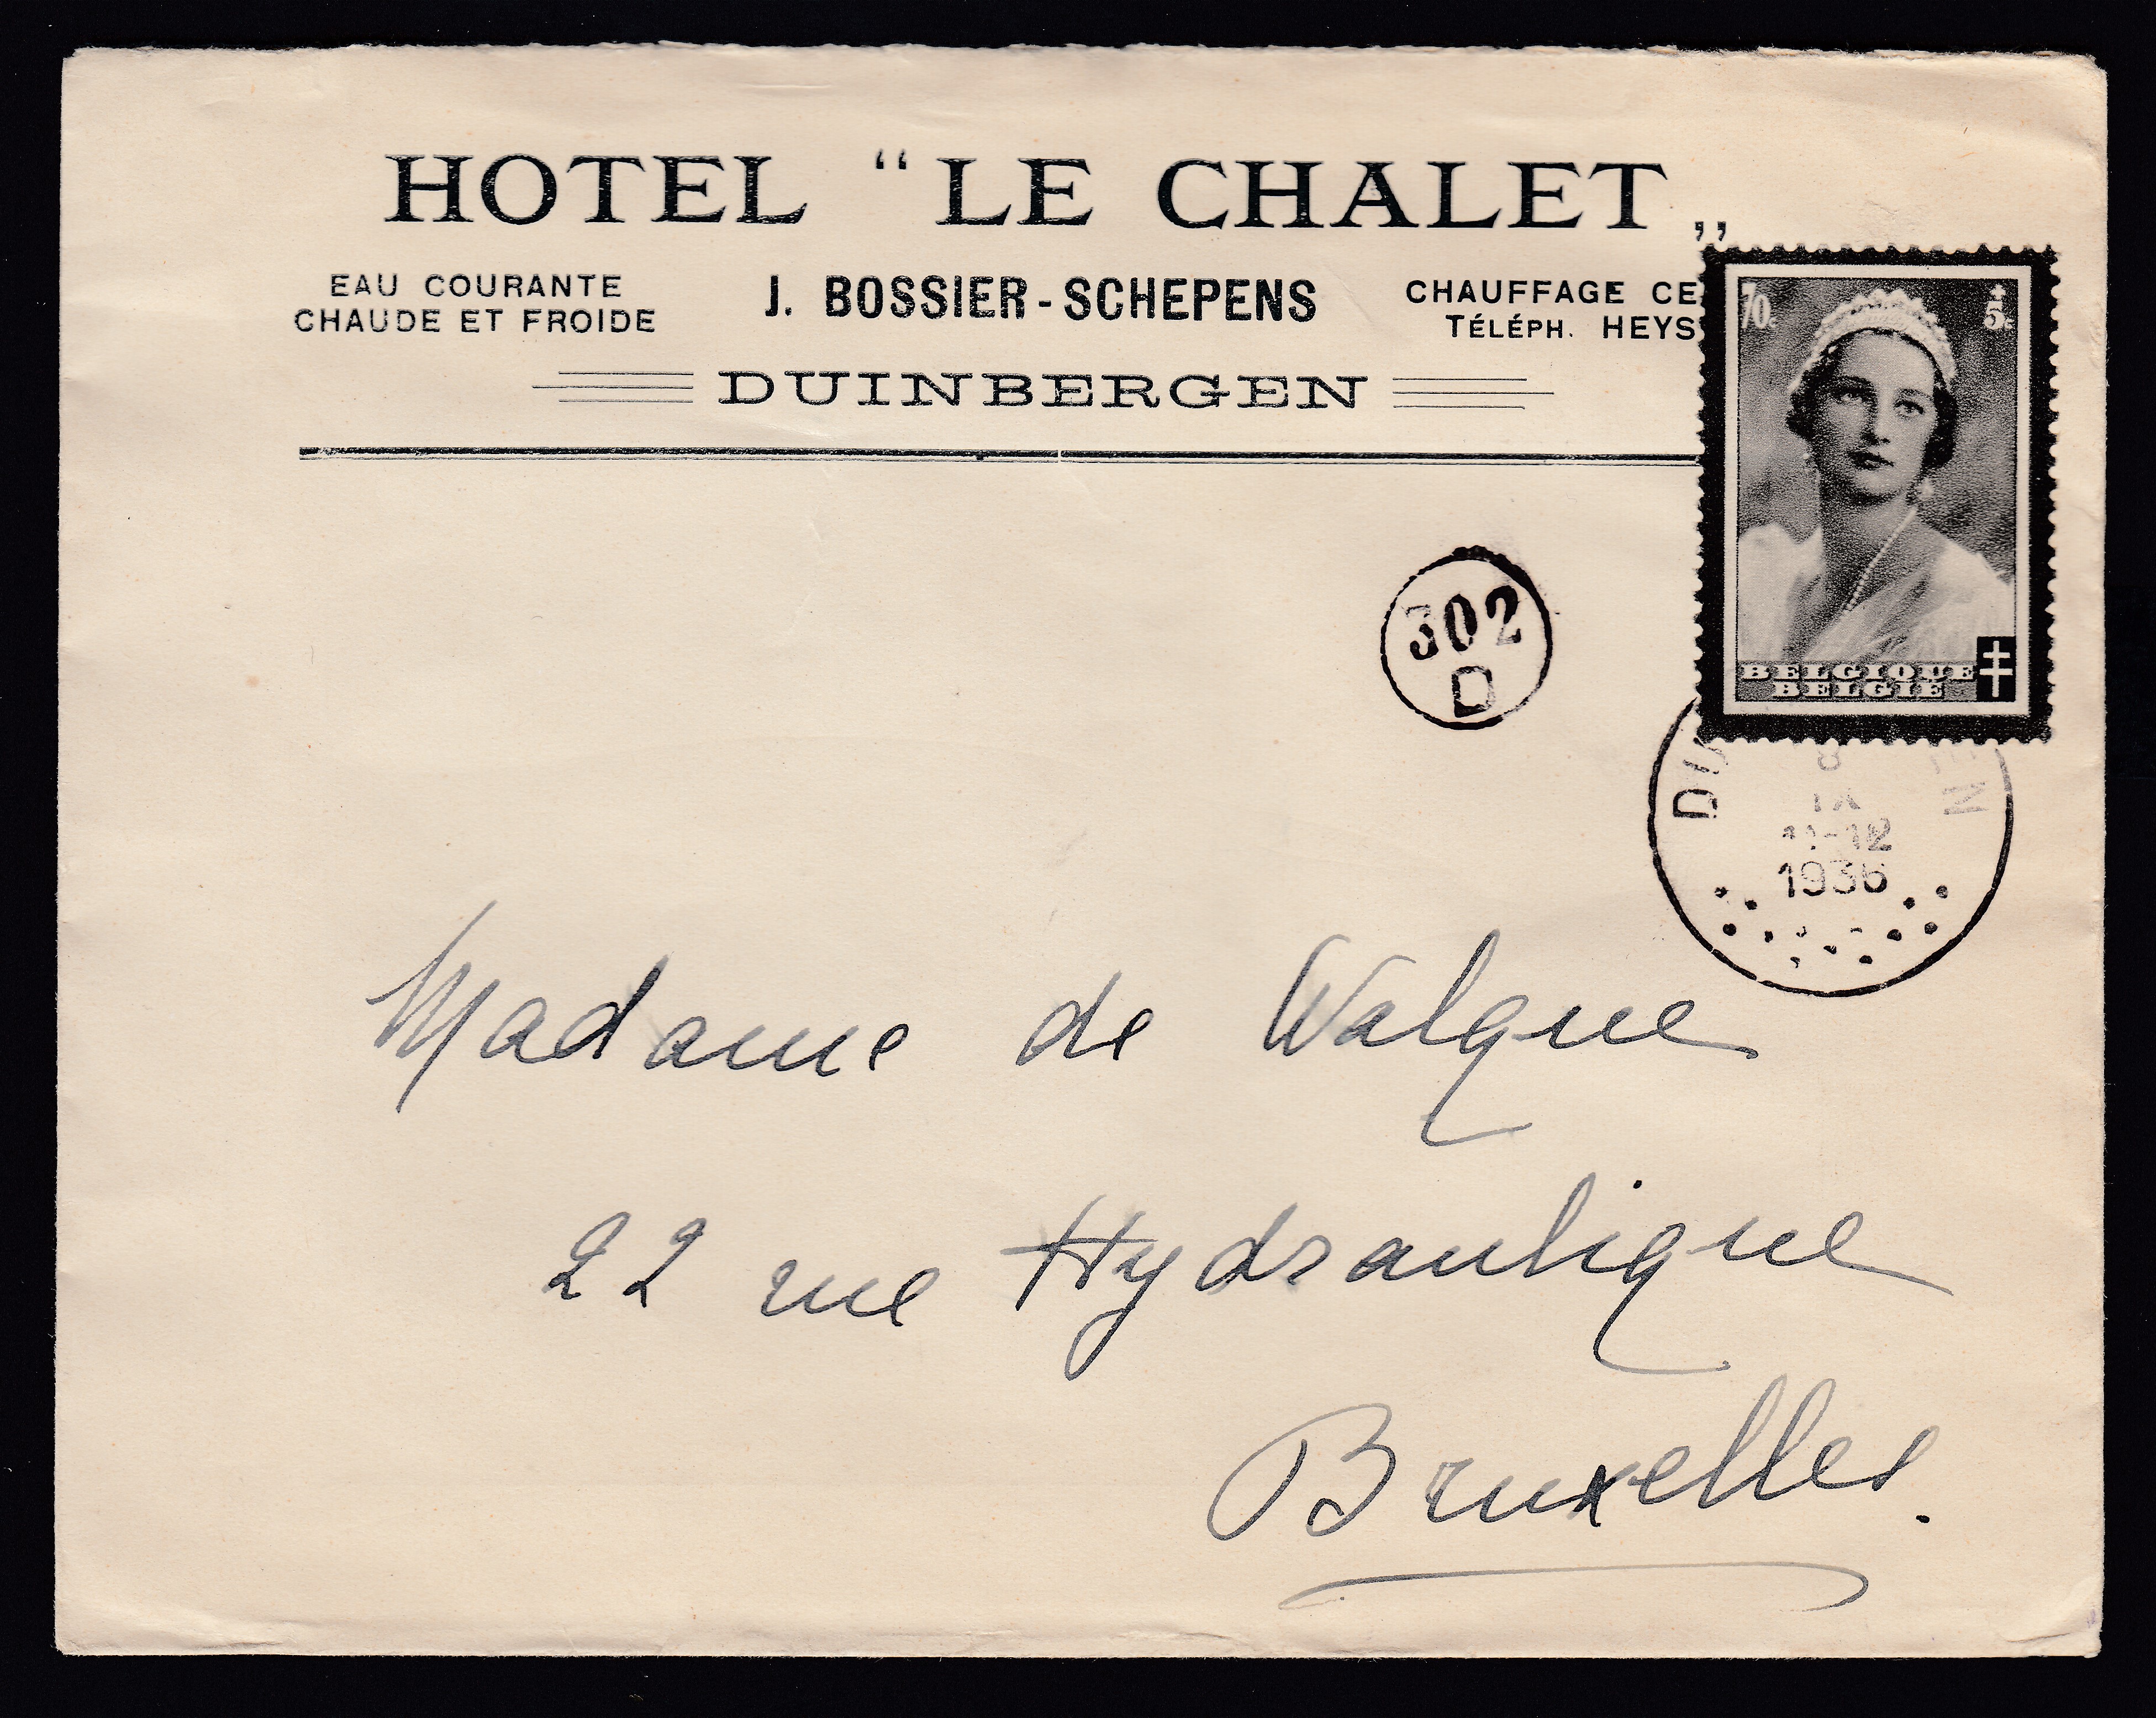 HOTEL “LE CHALET„
EAU COURANTE
CHAUDE ET FROIDE
J. BOSSIER-SCHEPENS
CHAUFFAGE CE
TÉLÉPH. HEYS
DUINBERGEN
70c
+
5c
BELGIQUE
BELGIE
302
D
IX
11-12
1936
Madame de Walque
22 rue Hydraulique
Bruxelles.